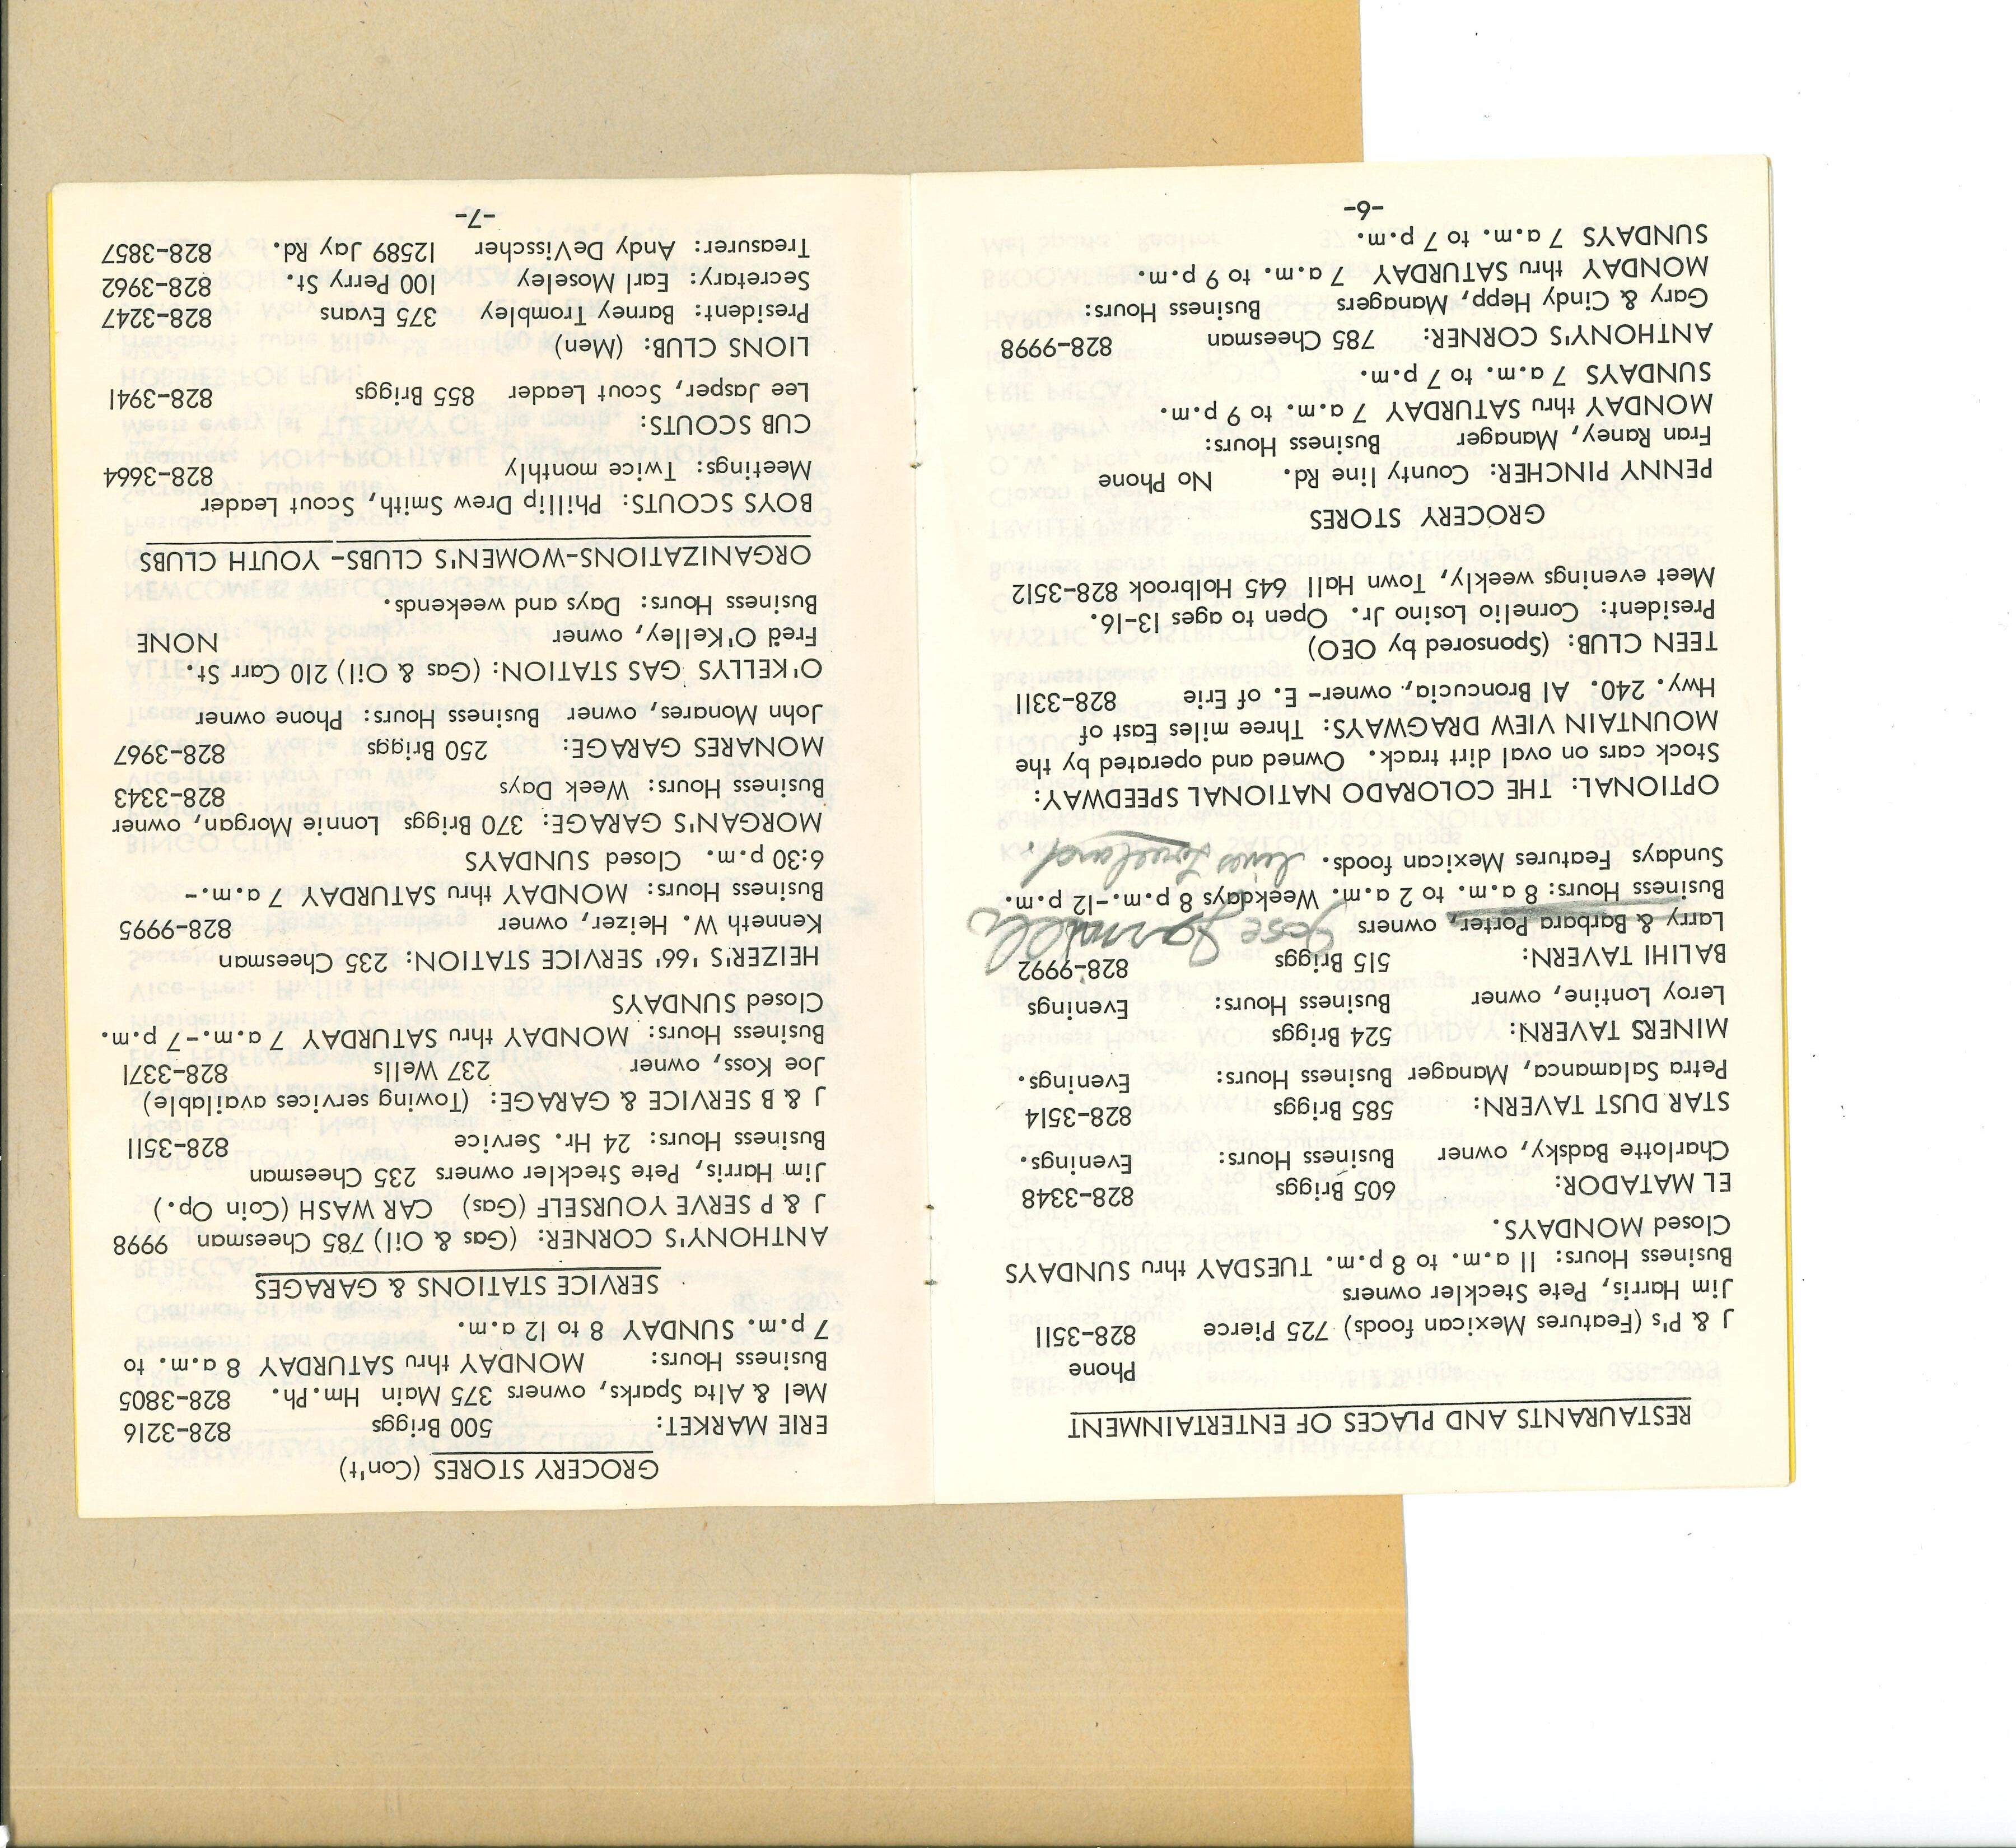 RESTAURANTS AND PLACES OF ENTERTAINMENT
Phone
J & P's (Features Mexican foods) 725 Pierce 828-3511
Jim Harris, Pete Steckler owners
Business Hours: 11 a.m. to 8 p.m. TUESDAY thru SUNDAYS
Closed MONDAYS.
EL MATADOR: 605 Briggs 828-3348
Charlotte Badsky, owner Business Hours: Evenings.
STAR DUST TAVERN: 585 Briggs 828-3514
Petra Salamanca, Manager Business Hours: Evenings.
MINERS TAVERN: 524 Briggs
Leroy Lontine, owner Business Hours: Evenings
BALIHI TAVERN: 515 Briggs 828-9992
Larry & Barbara Porter, owners Jose
Business Hours: 8 a.m. to 2 a.m. Weekdays 8 p.m.-12 p.m.
Sundays Features Mexican foods. lives Loveland.
OPTIONAL: THE COLORADO NATIONAL SPEEDWAY:
Stock cars on oval dirt track. Owned and operated by the
MOUNTAIN VIEW DRAGWAYS: Three miles East of
Hwy. 240. Al Broncucia, owner- E. of Erie 828-3311
TEEN CLUB: (Sponsored by OEO)
President: Cornelio Losino Jr. Open to ages 13-16.
Meet evenings weekly, Town Hall 645 Holbrook 828-3512
GROCERY STORES
PENNY PINCHER: County line Rd. No Phone
Fran Raney, Manager Business Hours:
MONDAY thru SATURDAY 7 a.m. to 9 p.m.
SUNDAYS 7 a.m. to 7 p.m.
ANTHONY'S CORNER: 785 Cheesman 828-9998
Gary & Cindy Hepp, Managers Business Hours:
MONDAY thru SATURDAY 7 a.m. to 9 p.m.
SUNDAYS 7 a.m. to 7 p.m.
-6-
GROCERY STORES (Con't)
ERIE MARKET: 500 Briggs 828-3216
Mel & Alta Sparks, owners 375 Main Hm.Ph. 828-3805
Business Hours: MONDAY thru SATURDAY 8 a.m. to
7 p.m. SUNDAY 8 to 12 a.m.
SERVICE STATIONS & GARAGES
ANTHONY'S CORNER: (Gas & Oil) 785 Cheesman 9998
J & P SERVE YOURSELF (Gas) CAR WASH (Coin Op.)
Jim Harris, Pete Steckler owners 235 Cheesman
Business Hours: 24 Hr. Service 828-3511
J & B SERVICE & GARAGE: (Towing services available)
Joe Koss, owner 237 Wells 828-3371
Business Hours: MONDAY thru SATURDAY 7 a.m.-7 p.m.
Closed SUNDAYS
HEIZER'S '66' SERVICE STATION: 235 Cheesman
Kenneth W. Heizer, owner 828-9995
Business Hours: MONDAY thru SATURDAY 7 a.m.-
6:30 p.m. Closed SUNDAYS
MORGAN'S GARAGE: 370 Briggs Lonnie Morgan, owner
Business Hours: Week Days 828-3343
MONARES GARAGE: 250 Briggs 828-3967
John Monares, owner Business Hours: Phone owner
O'KELLYS GAS STATION: (Gas & Oil) 210 Carr St.
Fred O'Kelley, owner NONE
Business Hours: Days and weekends.
ORGANIZATIONS-WOMEN'S CLUBS- YOUTH CLUBS
BOYS SCOUTS: Phillip Drew Smith, Scout Leader
Meetings: Twice monthly 828-3664
CUB SCOUTS:
Lee Jasper, Scout Leader 855 Briggs 828-3941
LIONS CLUB: (Men)
President: Barney Trombley 375 Evans 828-3247
Secretary: Earl Moseley 100 Perry St. 828-3962
Treasurer: Andy DeVisscher 12589 Jay Rd. 828-3857
-7-